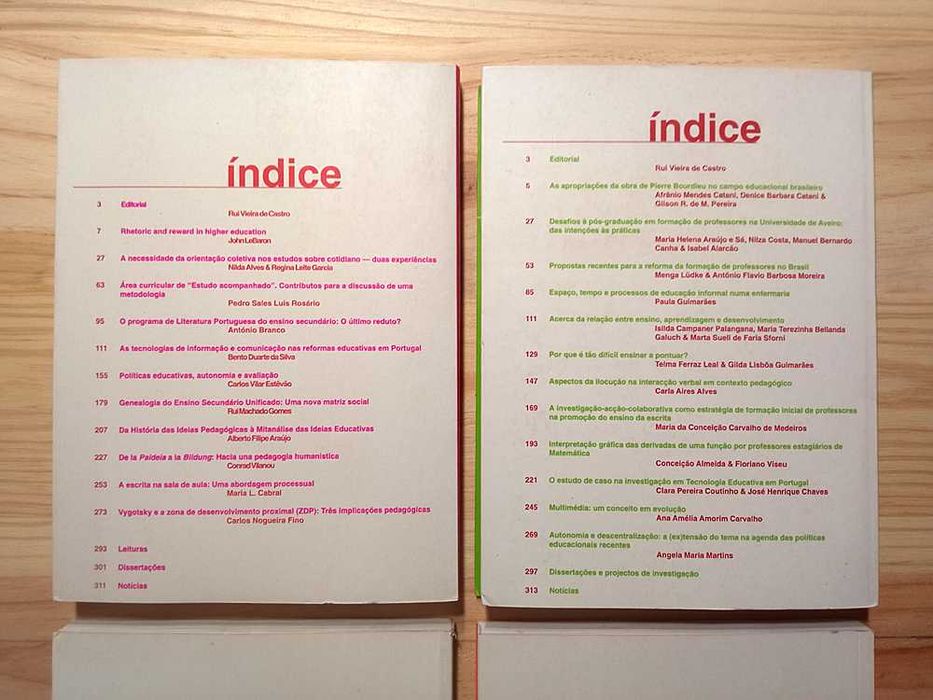 índice
3 Editorial
Rui Vieira de Castro
7 Rhetoric and reward in higher education
John LeBaron
27 A necessidade da orientação coletiva nos estudos sobre cotidiano — duas experiências
Nilda Alves & Regina Leite Garcia
63 Área curricular de “Estudo acompanhado”. Contributos para a discussão de uma
metodologia
Pedro Sales Luís Rosário
95 O programa de Literatura Portuguesa do ensino secundário: O último reduto?
António Branco
111 As tecnologias de informação e comunicação nas reformas educativas em Portugal
Bento Duarte da Silva
155 Políticas educativas, autonomia e avaliação
Carlos Vilar Estêvão
179 Genealogia do Ensino Secundário Unificado: Uma nova matriz social
Rui Machado Gomes
207 Da História das Ideias Pedagógicas à Mitanálise das Ideias Educativas
Alberto Filipe Araújo
227 De la Paideia a la Bildung: Hacia una pedagogía humanística
Conrad Vilanou
253 A escrita na sala de aula: Uma abordagem processual
Maria L. Cabral
273 Vygotsky e a zona de desenvolvimento proximal (ZDP): Três implicações pedagógicas
Carlos Nogueira Fino
293 Leituras
301 Dissertações
311 Notícias
índice
3 Editorial
Rui Vieira de Castro
5 As apropriações da obra de Pierre Bourdieu no campo educacional brasileiro
Afrânio Mendes Catani, Denice Barbara Catani &
Gilson R. de M. Pereira
27 Desafios à pós-graduação em formação de professores na Universidade de Aveiro:
das intenções às práticas
Maria Helena Araújo e Sá, Nilza Costa, Manuel Bernardo
Canha & Isabel Alarcão
53 Propostas recentes para a reforma da formação de professores no Brasil
Menga Lüdke & António Flavio Barbosa Moreira
85 Espaço, tempo e processos de educação informal numa enfermaria
Paula Guimarães
111 Acerca da relação entre ensino, aprendizagem e desenvolvimento
Isilda Campaner Palangana, Maria Terezinha Bellanda
Galuch & Marta Sueli de Faria Sforni
129 Por que é tão difícil ensinar a pontuar?
Telma Ferraz Leal & Gilda Lisbôa Guimarães
147 Aspectos da ilocução na interacção verbal em contexto pedagógico
Carla Aires Alves
169 A investigação-acção-colaborativa como estratégia de formação inicial de professores
na promoção do ensino da escrita
Maria da Conceição Carvalho de Medeiros
193 Interpretação gráfica das derivadas de uma função por professores estagiários de
Matemática
Conceição Almeida & Floriano Viseu
221 O estudo de caso na investigação em Tecnologia Educativa em Portugal
Clara Pereira Coutinho & José Henrique Chaves
245 Multimédia: um conceito em evolução
Ana Amélia Amorim Carvalho
269 Autonomia e descentralização: a (ex)tensão do tema na agenda das políticas
educacionais recentes
Angela Maria Martins
297 Dissertações e projectos de investigação
313 Notícias